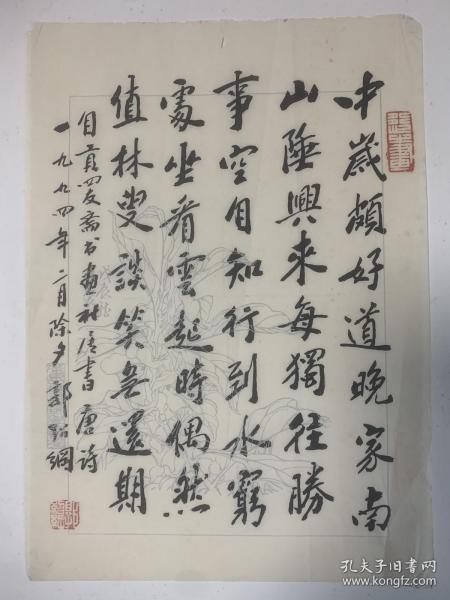 中歲頗好道晚家南
山陲興來每獨往勝
事空自知行到水窮
處坐看雲起時偶然
值林叟談笑無還期
四友齋书画社唐書唐诗
一九九四年二月除夕郭绍綱
孔夫子旧书网
www.kongfz.com